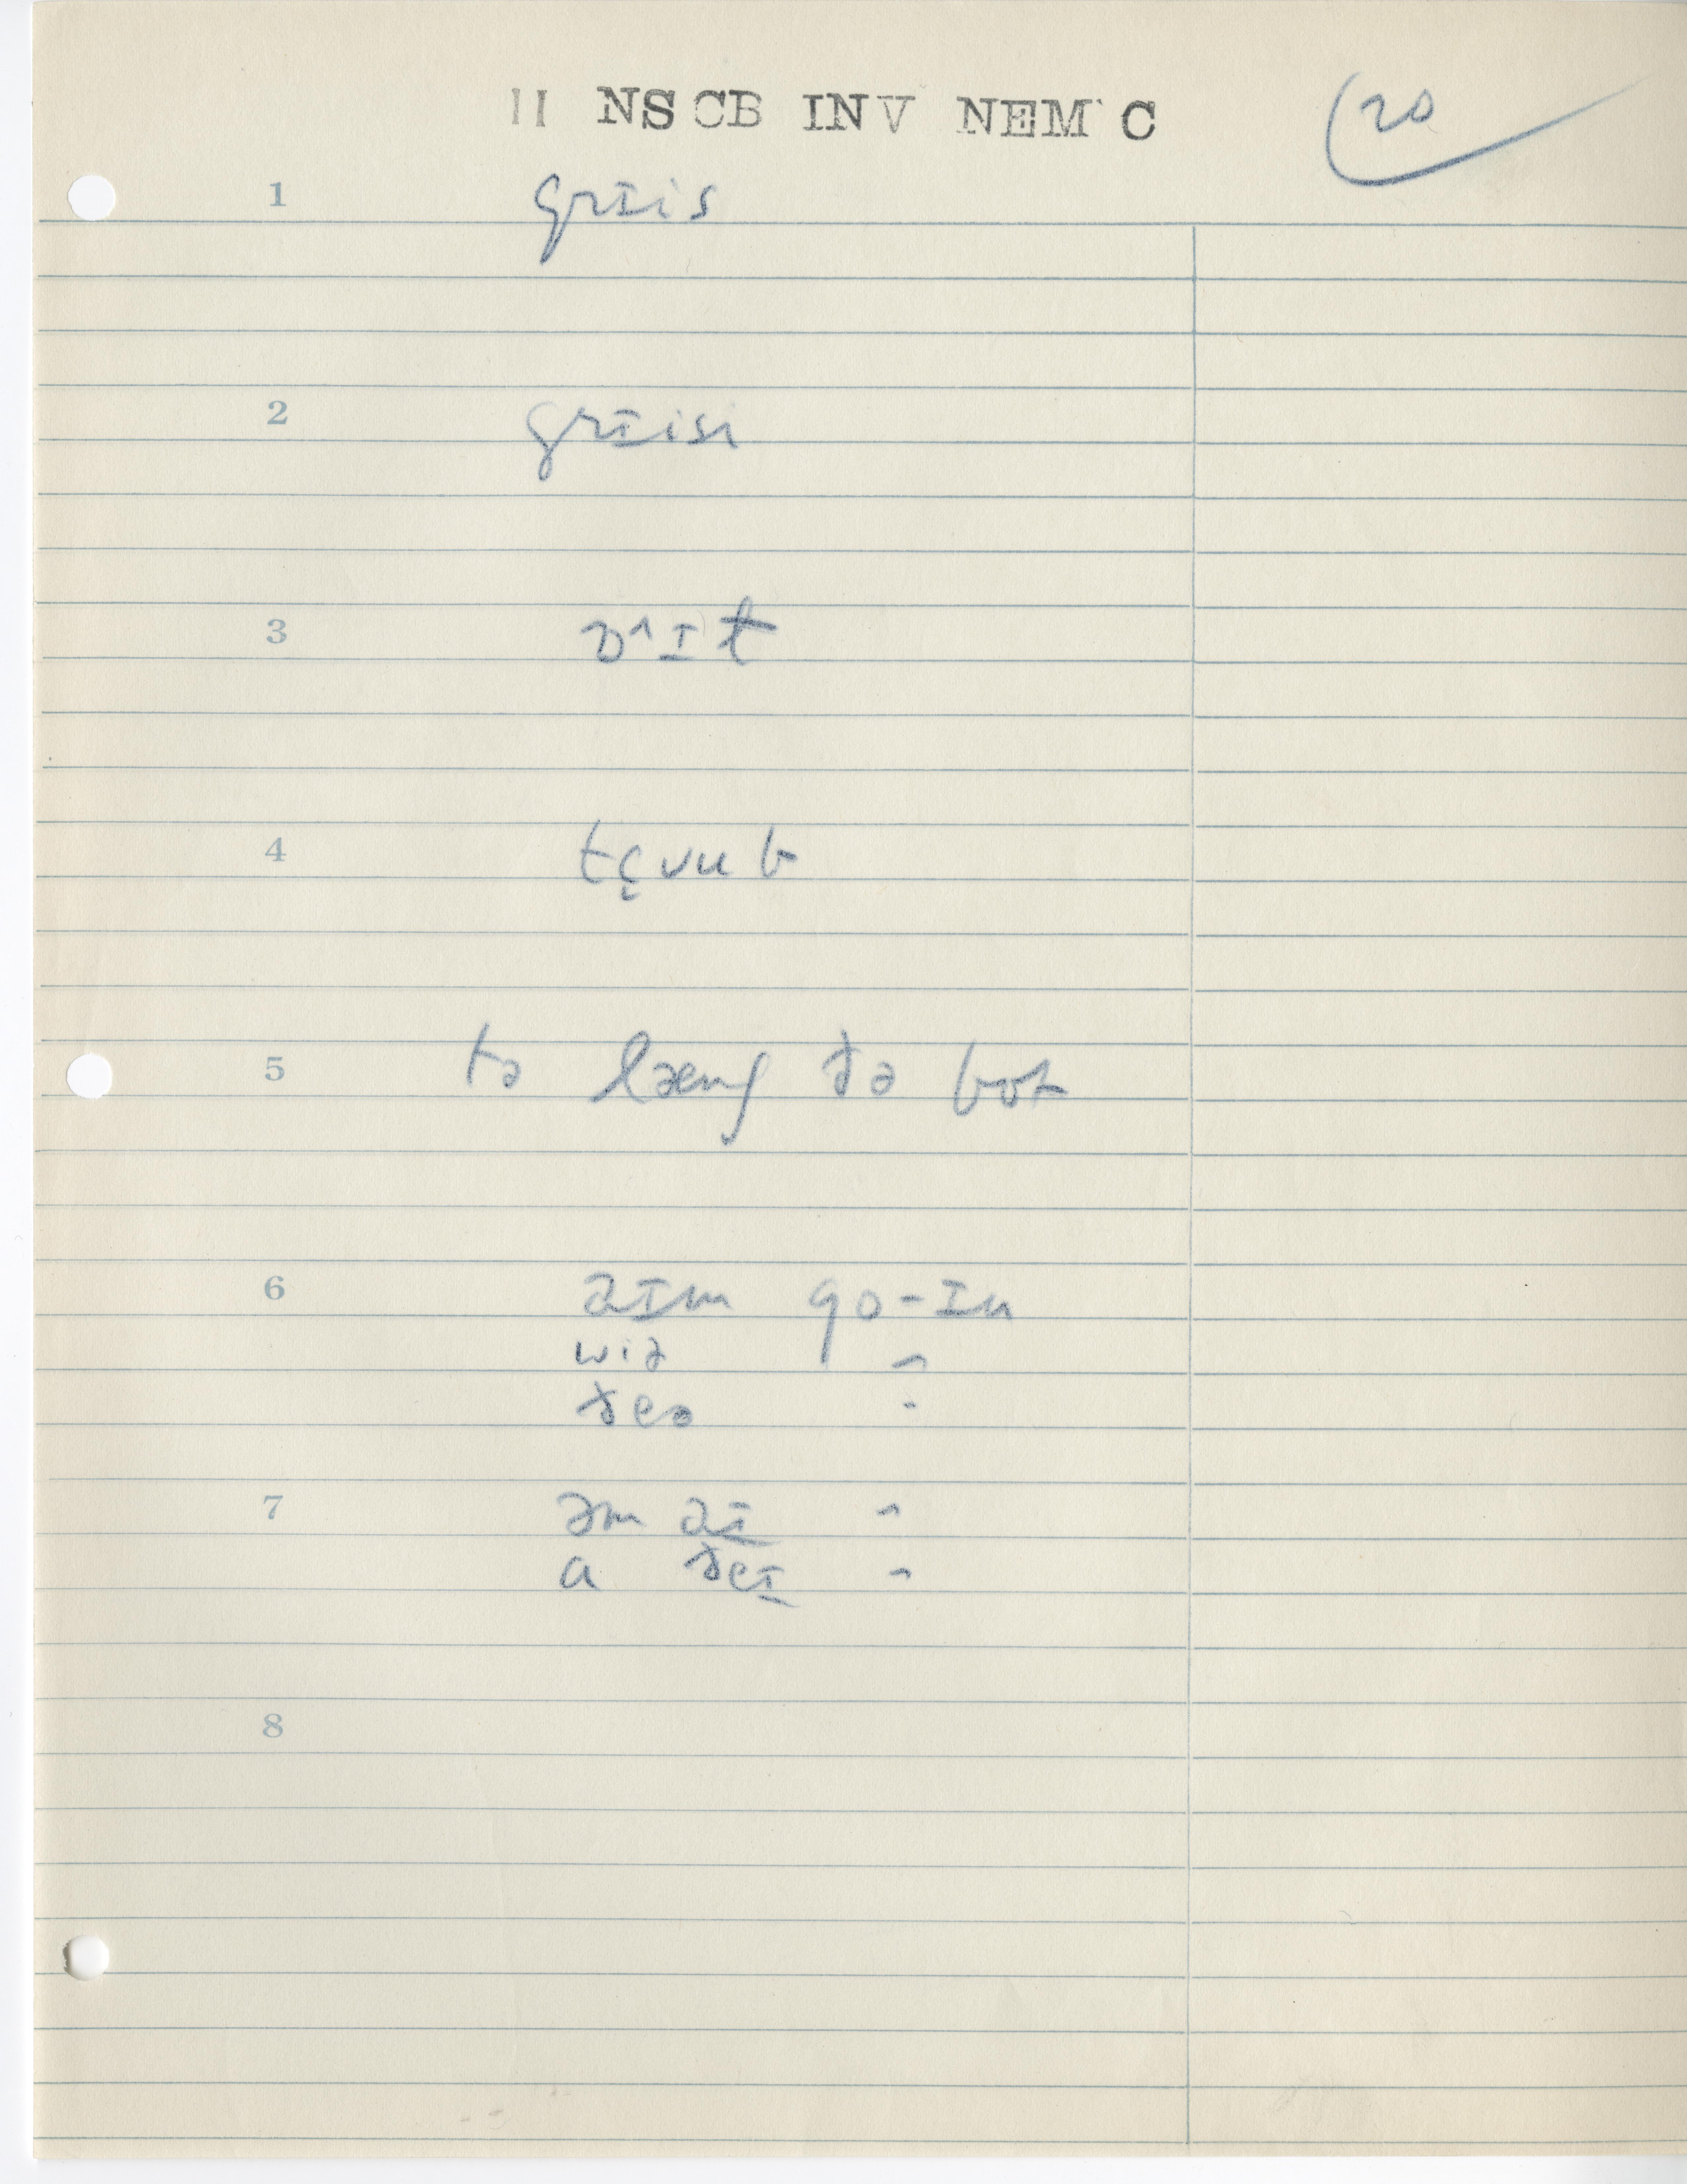 II NSCB INV NEM'C
20
1 grɪis
2 grɪisi
3 ɒ^ɪt
4 tɕ
5 tə ðə bot
6 aɪm go-ɪn
wiə "
ðeə "
7 əm aɪ "
a ðeɪ "
8